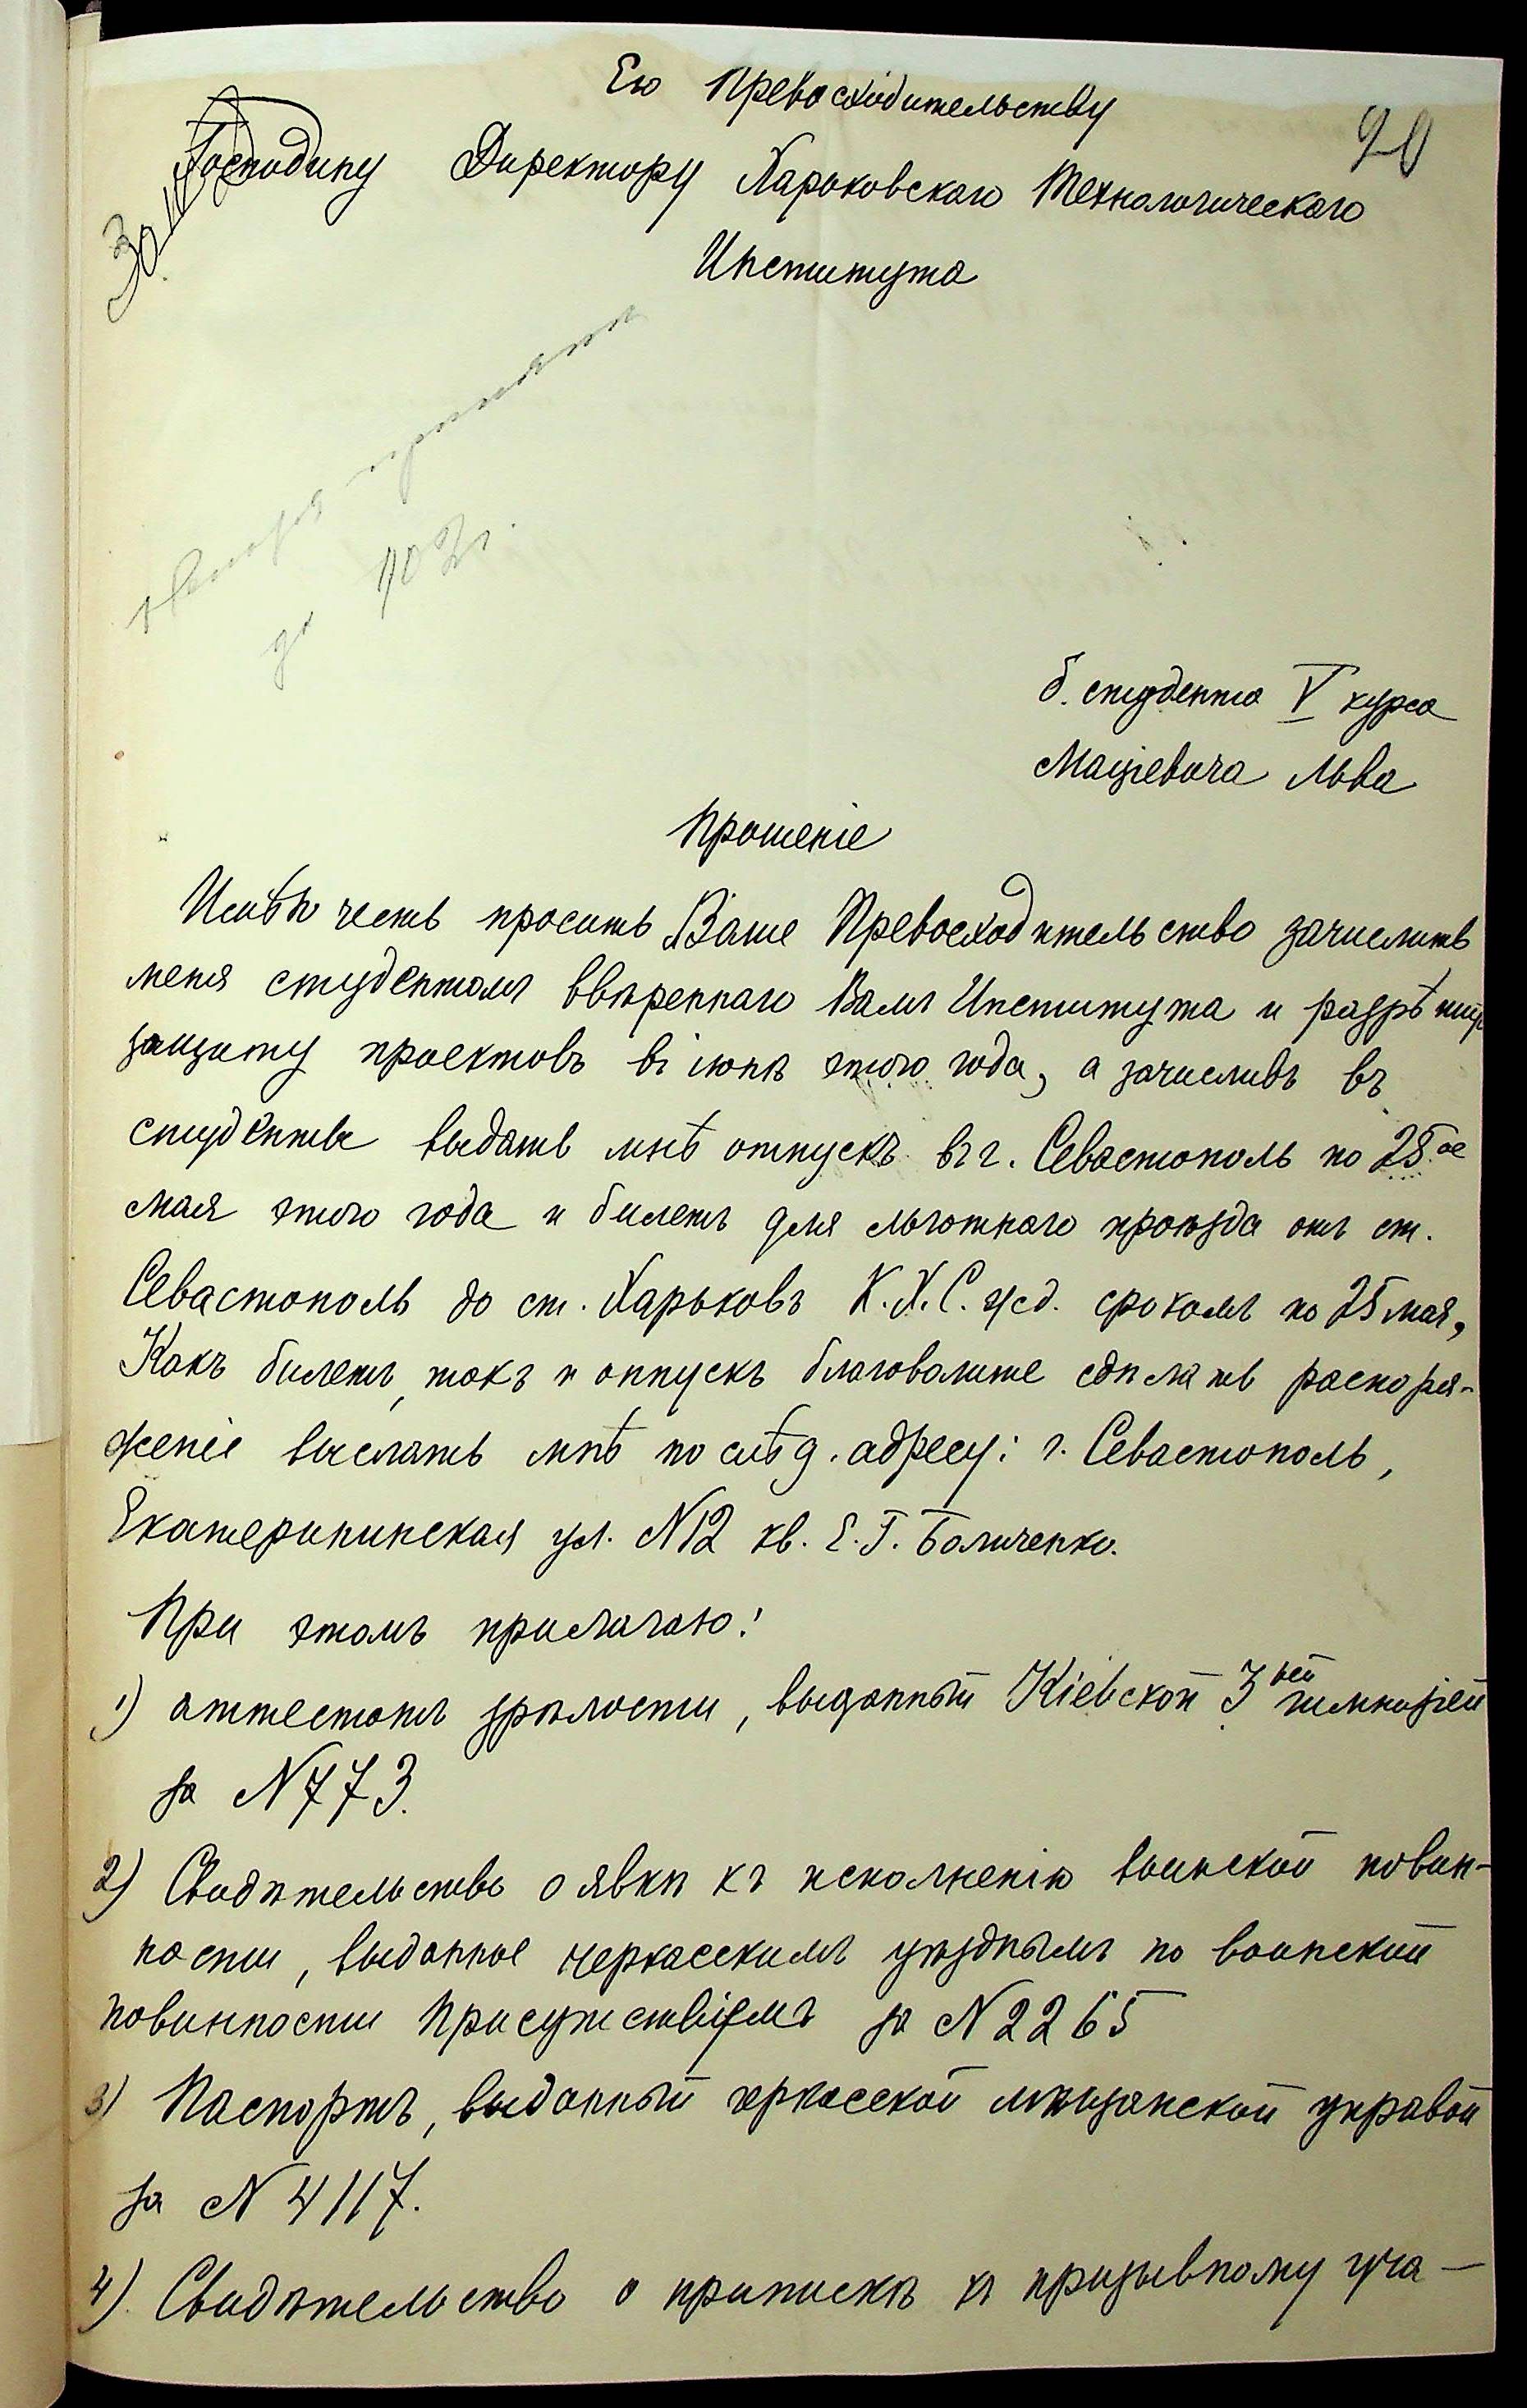 Его Превосходительству
20
Господину Директору Харьковскаго Технологическаго
Института
б. студента V курса
Мацѣевича Льва
Прошеніе
Имѣю честь просить Ваше Превосходительство зачислить
меня студентомъ ввѣреннаго Вамъ Института и разрѣшить
защиту проектовъ въ іюнѣ этого года, а зачисливъ въ
студенты выдать мнѣ отпускъ въ г. Севастополь по 25ое
мая этого года и билетъ для льготнаго проѣзда отъ ст.
Севастополь до ст. Харьковъ К.Х.С. ж.д. срокомъ по 25 мая,
Какъ билетъ, такъ и отпускъ благоволите сдѣлать распоря-
женіе выслать мнѣ по слѣд. адресу: г. Севастополь,
Екатерининская ул. N12 кв. Е.Г.
При этомъ прилагаю:
1) аттестатъ зрѣлости, выданный Кіевской 3ьей гимназіей
за N773.
2) Свидѣтельство о явкѣ къ исполненію воинской повин-
ности, выданное черкасскимъ уѣзднымъ по воинской
повинности Присутствіемъ за N2265
3) Паспортъ, выданный черкасской мѣщанской управой
за N4117.
4) Свидѣтельство о припискѣ къ призывному уча-